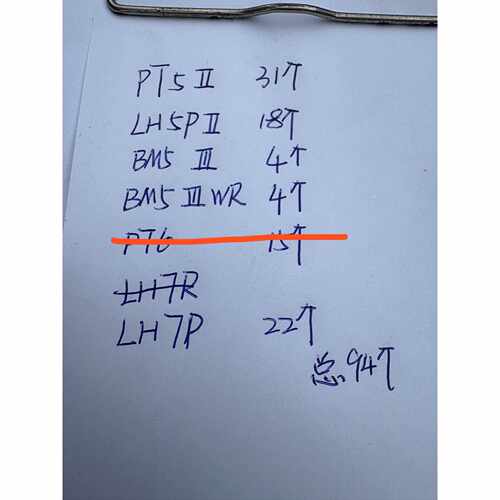 PT5 II 31个
LH5P II 18个
BM5 III 4个
BM5 III WR 4个
PT6 15个
LH7R
LH7P 22个
总94个